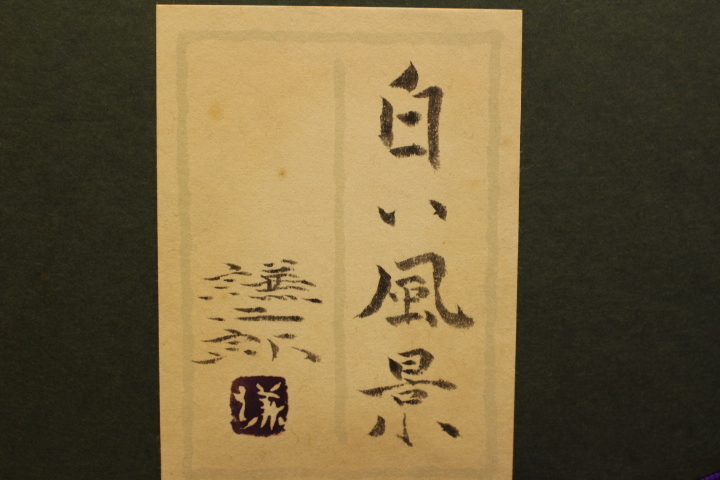 白い風景
謙二郎
謙